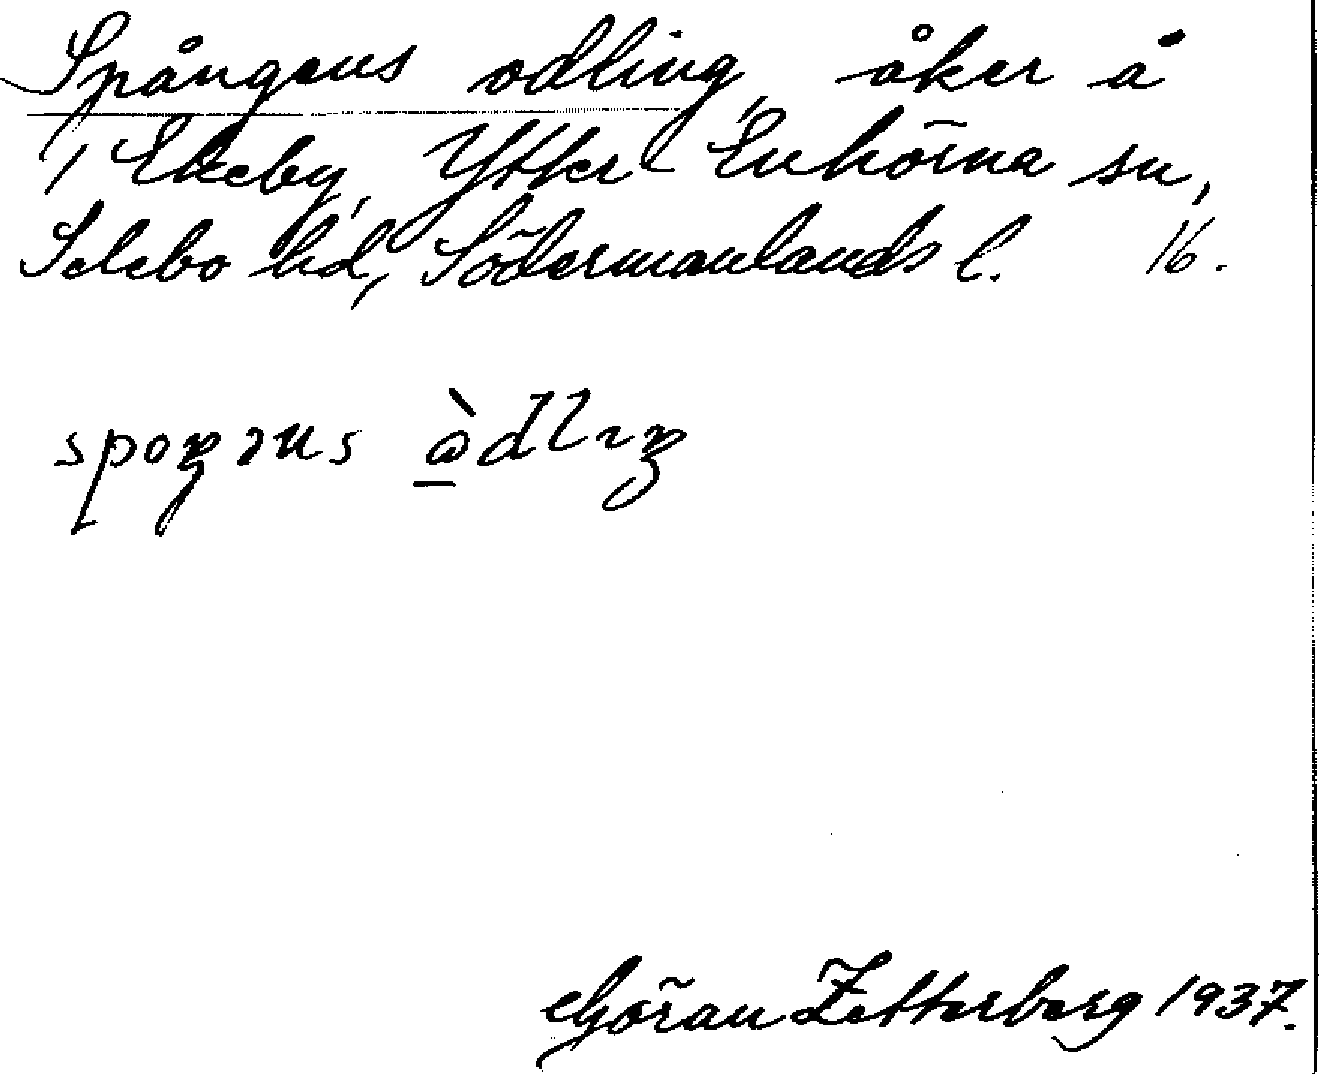 Spångens odling, åker å
Ekeby, Ytter-Enhörna sn,
Selebo hd, Södermanlands l. 16.
Göran Zetterberg 1937.